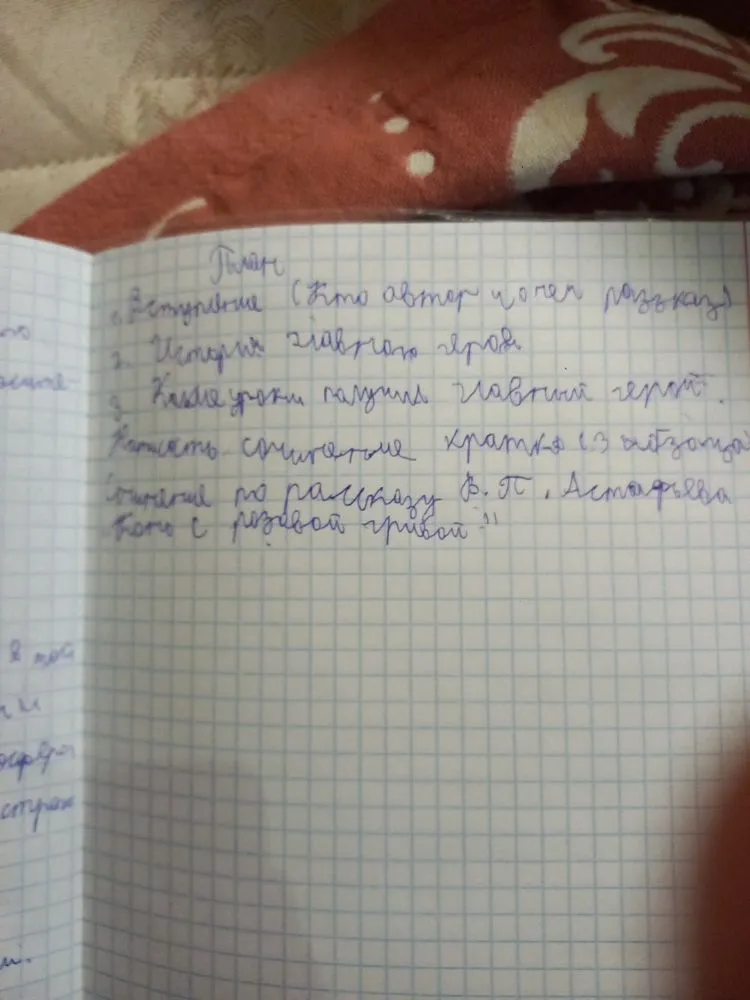 План
1. Вступление (Кто автор и о чем разсказ)
2. История главного героя
3. Какие уроки получил главный герой.
Написать сочинение кратко (3 абзаца)
Сочинение по рассказу В.П. Астафьева
Конь с розовой гривой"